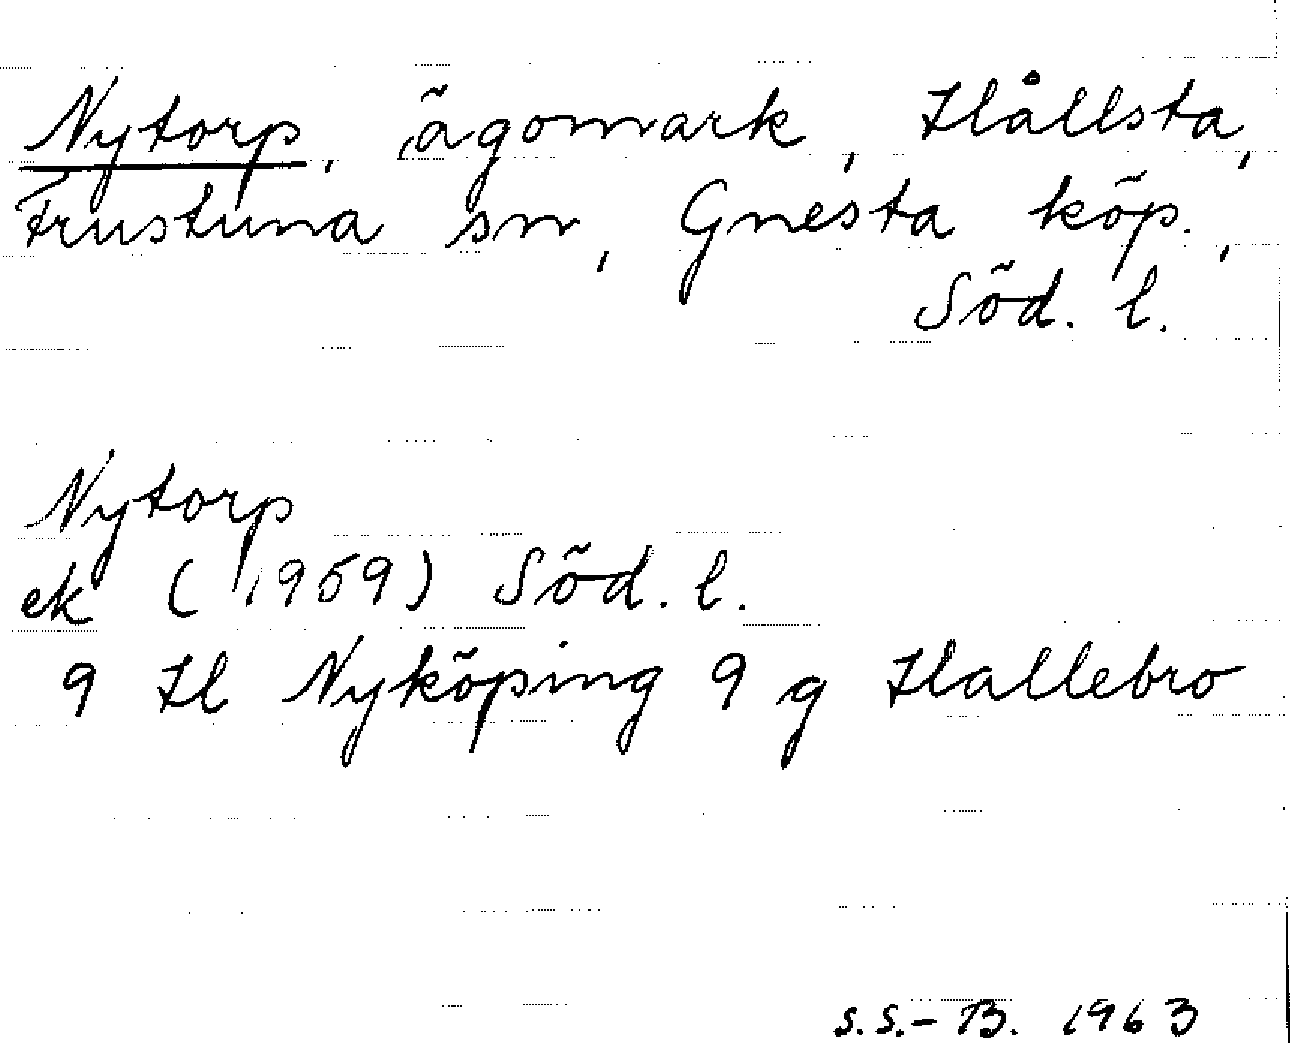 Nytorp, ägomark, Hållsta,
Frustuna sn, Gnesta köp.,
Söd. l.
Nytorp
ek (1959) Söd. l.
9 H Nyköping 9 g Hallebro
S.S.-B. 1963